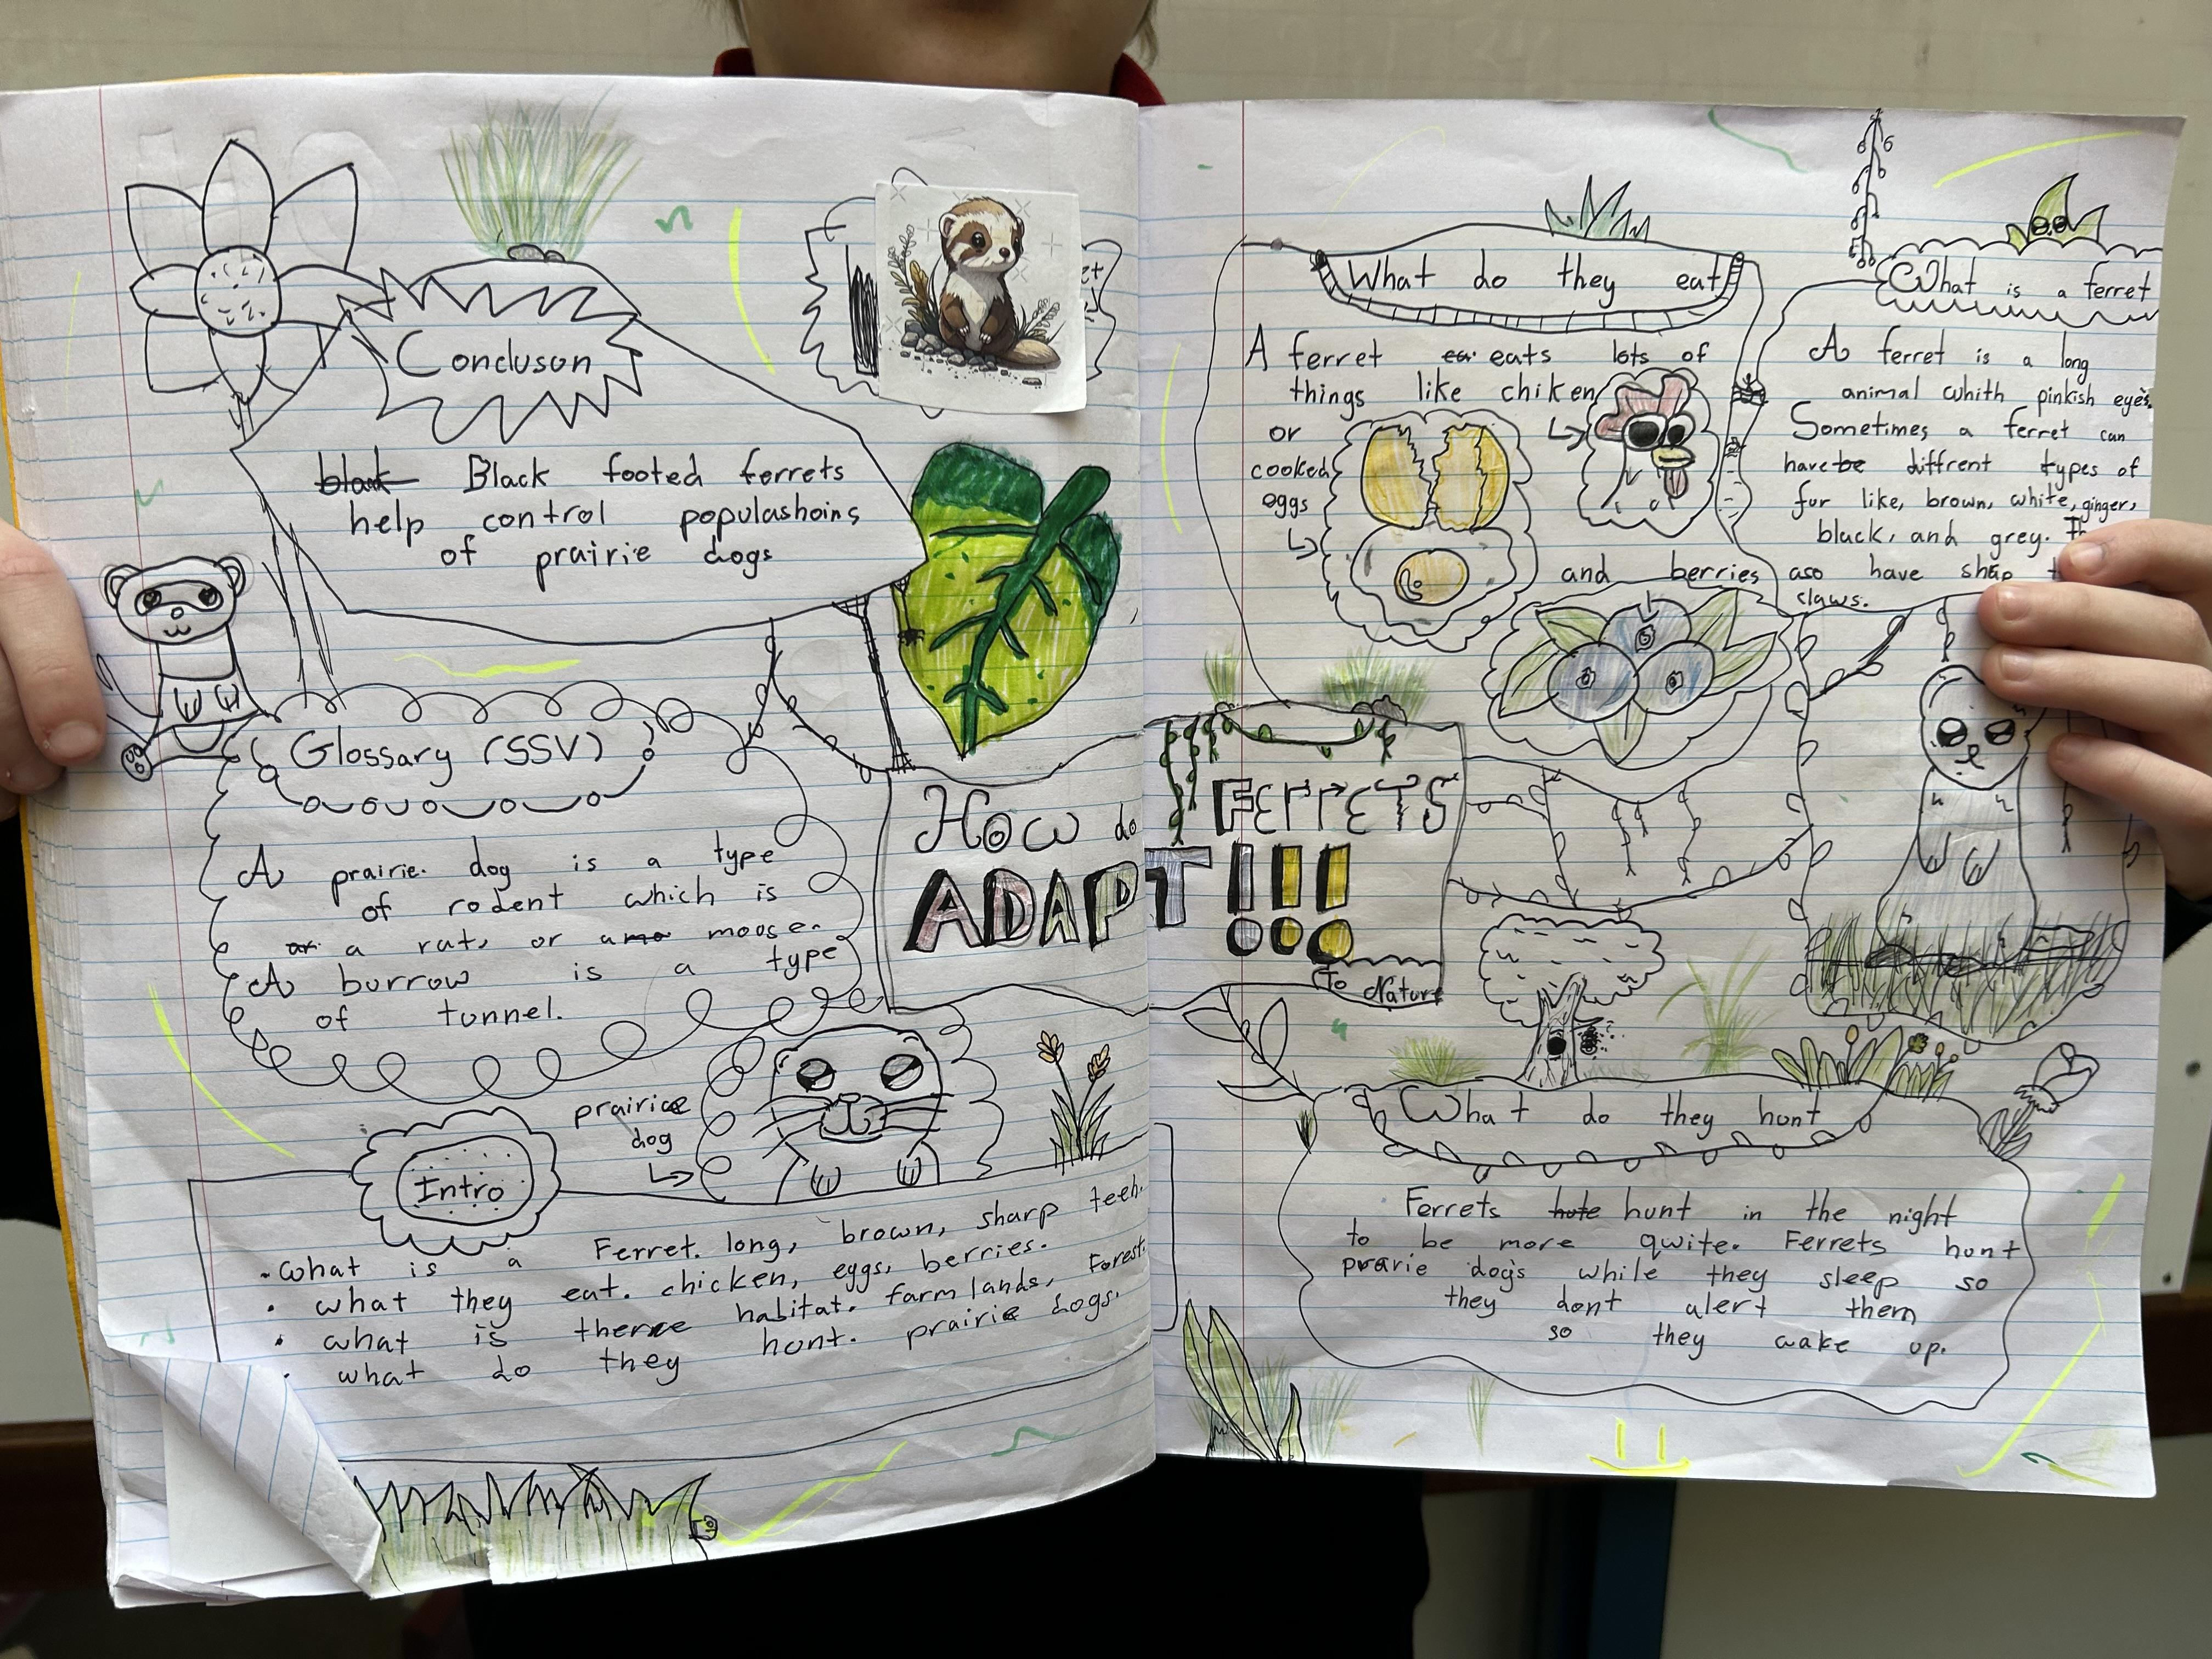 Concluson
black Black footed ferrets
help control populashoins
of prairie dogs
Glossary (SSV)
A prairie dog is a type
of rodent which is
ar a rat, or a mo moose.
A burrow is a type
of tunnel.
prairice
dog
Intro
What is a Ferret. long, brown, sharp teeh.
• what they eat. chicken, eggs, berries.
• what is there habitat. farmlands, Forest.
• what do they hunt. prairie dogs.
How do FERRETS
ADAPT!!!
To Nature
What do they eat
A ferret ea eats lots of
things like chiken
or
cooked
eggs
and berries
What is a ferret
A ferret is a long
animal whith pinkish eyes.
Sometimes a ferret can
have be diffrent types of
fur like, brown, white, ginger,
black, and grey.
aso have shap
claws.
What do they hunt
Ferrets hute hunt in the night
to be more qwite. Ferrets hunt
prarie dogs while they sleep so
they dont alert them
so they wake up.